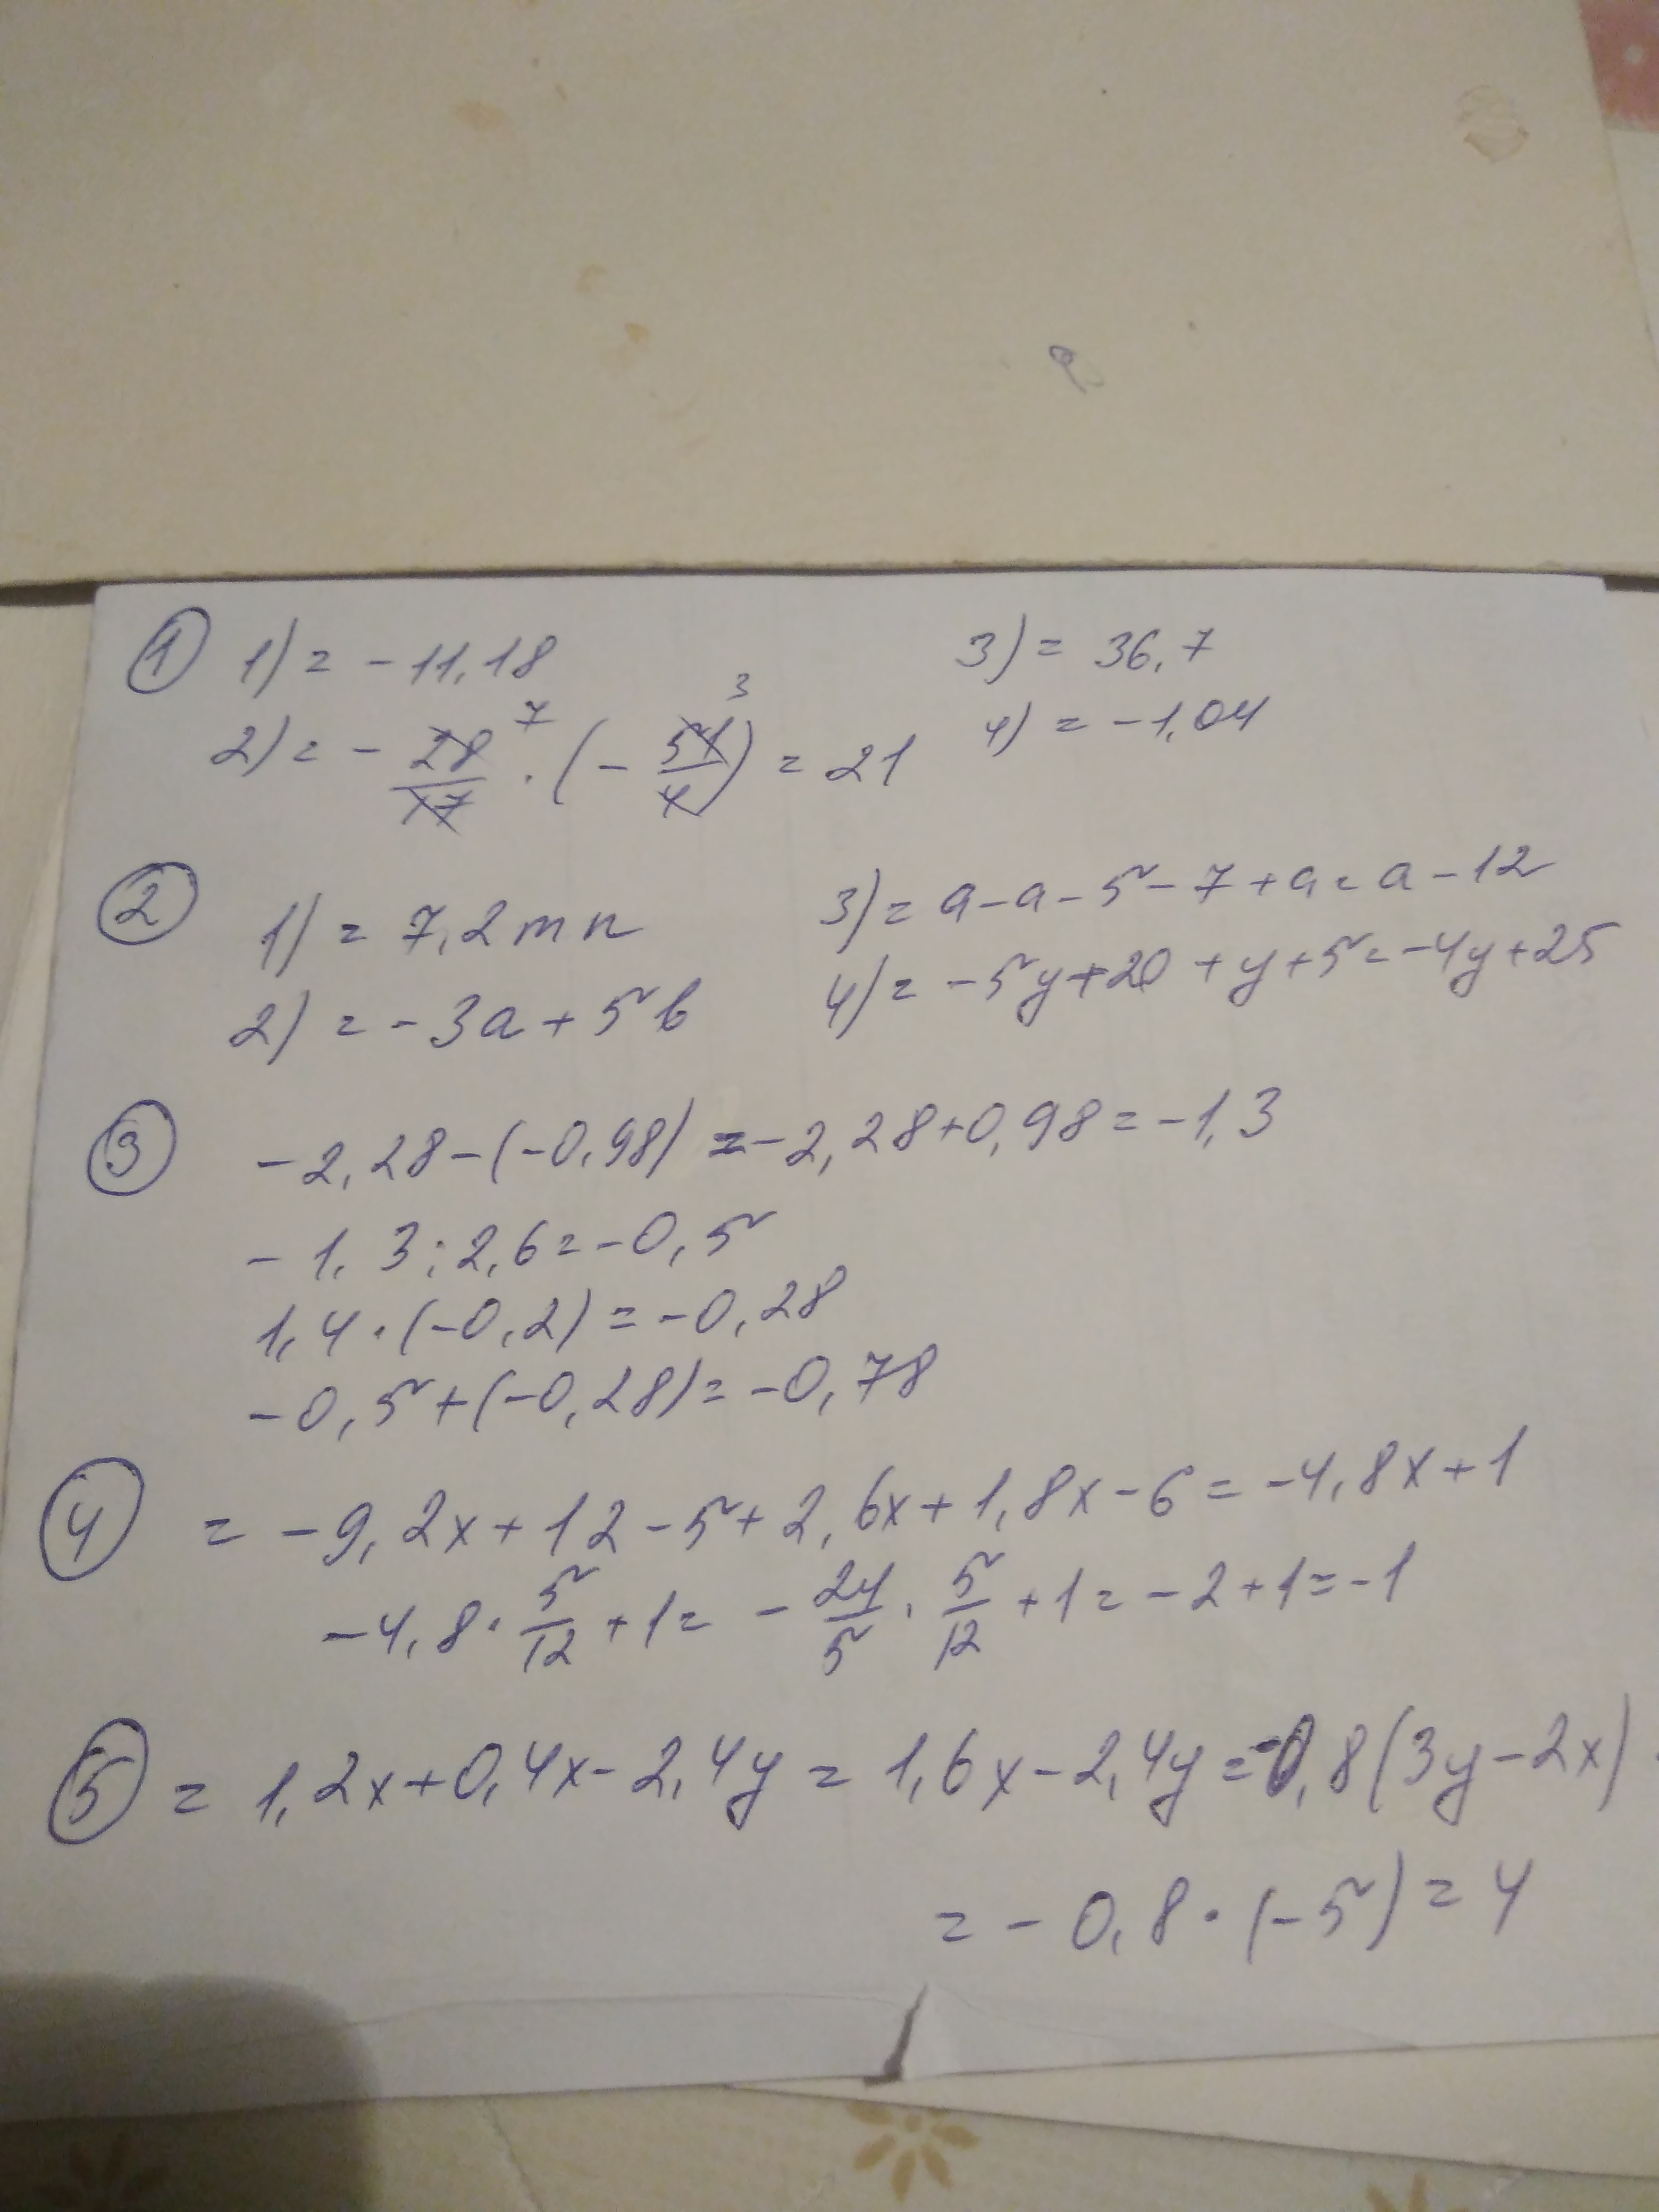 ① 1) = -11,18
3) = 36,7
2) = - 28/17 7 · (- 51/4) 3 = 21
4) = -1,04
② 1) = 7,2mn
3) = a-a-5-7+a=a-12
2) = -3a+5b
4) = -5y+20+y+5=-4y+25
③ -2,28-(-0,98) =-2,28+0,98=-1,3
-1,3:2,6=-0,5
1,4·(-0,2)=-0,28
-0,5+(-0,28)=-0,78
④ = -9,2x+12-5+2,6x+1,8x-6=-4,8x+1
-4,8·5/12+1= -24/5·5/12+1=-2+1=-1
⑤ = 1,2x+0,4x-2,4y=1,6x-2,4y=-0,8(3y-2x)
=-0,8·(-5)=4